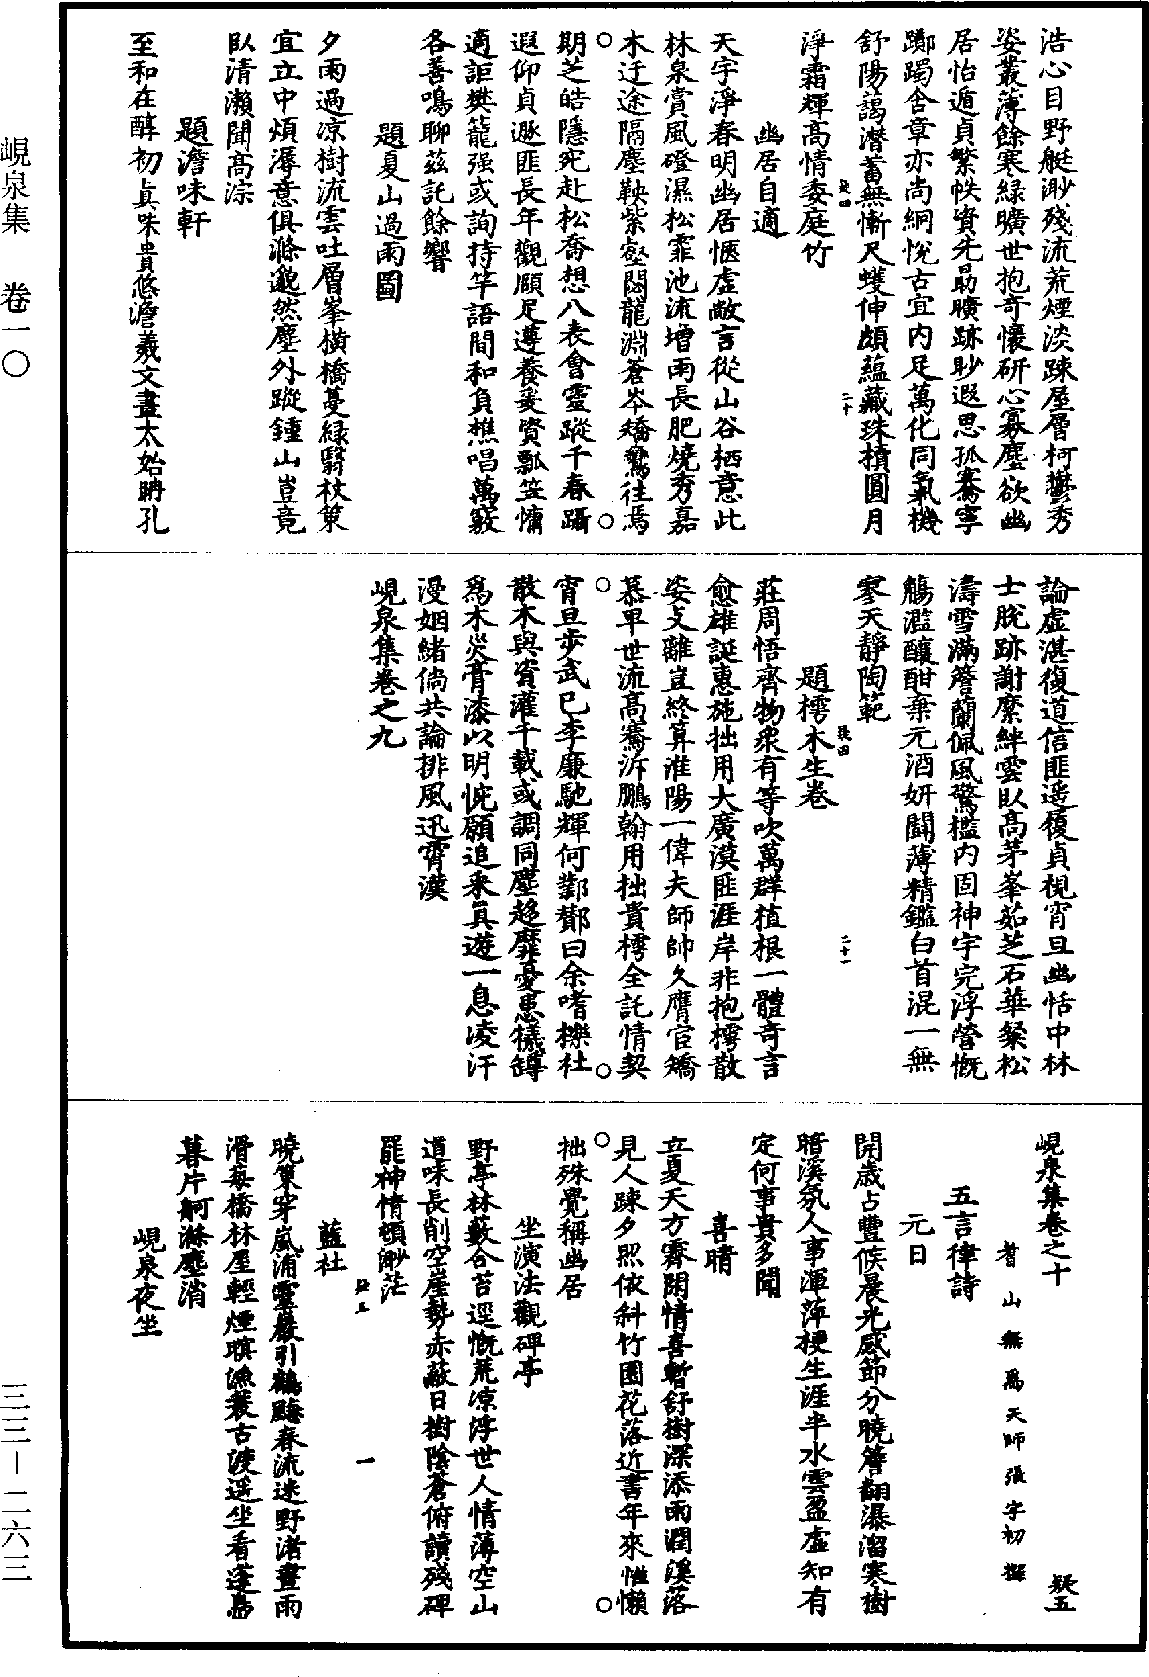 浩心目野艇渺殘流荒煙淡踈屋層柯鬱秀
姿叢薄餘寒綠曠世抱奇懷研心寡塵欲幽
居怡遁貞繁帙資先勗曠跡眇遐思孤騫寧
躑躅含章亦尚絅悅古宜内足萬化同氣機
舒陽藹潛蓄無慚尺蠖伸頗蘊藏珠櫝圓月
疑四 二十
淨霜輝高情委庭竹
幽居自適
天宇淨春明幽居愜虚敞言從山谷栖意此
林泉賞風磴濕松霏池流增雨長肥燒秀嘉
木迂途隔塵鞅紫壑閟龍淵蒼岑矯鶩往焉
期芝皓隱宛赴松喬想八表會靈蹤千春躡
遐仰貞遯匪長年觀頤足遵養爰資瓢笠慵
適詎樊籠强或詢持竿語間和負樵唱萬竅
各善鳴聊茲託餘響
題夏山過雨圖
夕雨過凉樹流雲吐層峯橫橋蔓綠翳杖策
宜立中煩溽意俱滌邈然塵外蹤鍾山豈竟
臥清瀨聞高淙
題澹味軒
至和在醇初眞味貴悠澹羲文畫太始聃孔
論虚湛復道信匪遥履貞視宵旦幽恬中林
士脫跡謝縻絆雲臥高茅峯茹芝石華粲松
濤雪滿簷蘭佩風驚檻内固神宇完浮營慨
觴濫釀酣棄元酒妍鬬薄精鑑白首混一無
寥天靜陶範
疑四 二十一
題樗木生卷
莊周悟齊物衆有等吹萬群植根一體奇言
愈雄誕惠施拙用大廣漠匪涯岸非抱樗散
姿支離豈終算淮陽一偉夫師帥久膺官矯
慕甲世流高騫泝鵬翰用拙貴樗全託情契
宵旦步武已李廉馳輝何鄧鄭曰余嗜櫟社
散木與資灌千載或調同塵趍靡憂患犧罇
爲木災膏漆以明惋願追釆眞遊一息凌汗
漫姻緒倘共論排風迅霄漢
峴泉集卷之九
峴泉集卷之十 疑五
耆山無爲天師張宇初撰
五言律詩
元日
開歲占豐候晨光感節分曉簷翻瀑溜寒樹
暗溪氛人事渾萍梗生涯半水雲盈虚知有
定何事貴多聞
喜晴
立夏天方霽閑情喜暫舒樹深添雨潤溪落
見人踈夕照依斜竹園花落近書年來惟懶
拙殊覺稱幽居
坐演法觀碑亭
野亭林藪合苔逕慨荒凉浮世人情薄空山
道味長削空崖勢赤蔽日樹陰蒼俯讀殘碑
疑五 一
罷神情頓渺茫
藍社
曉策穿嵐浦靈巖引鶴䲶春流迷野渚晝雨
滑莓橋林屋輕煙暝漁蓑古渡遥坐看蓬島
暮片舸滌塵消
峴泉夜坐
峴泉集 卷一〇
三三－二六三